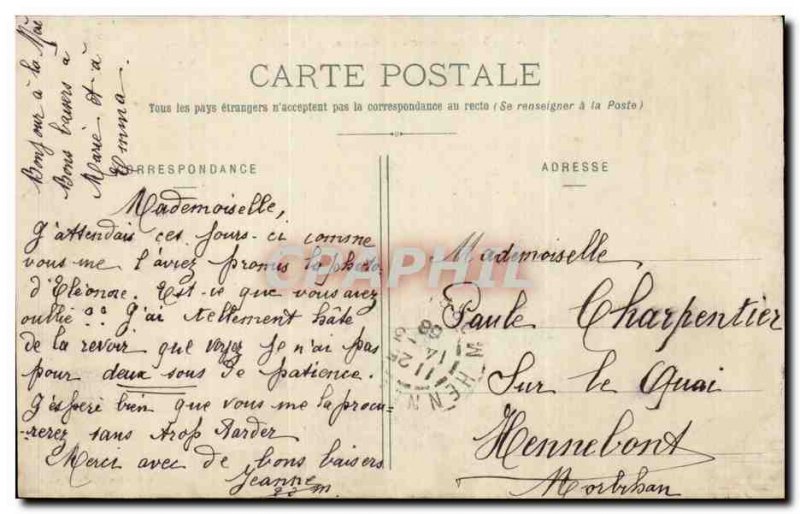 Bonjour à la
Bons baisers à
Marie et à
Emma.
CARTE POSTALE
Tous les pays étrangers n'acceptent pas la correspondance au recto (Se renseigner à la Poste)
CORRESPONDANCE
Mademoiselle,
J'attendais ces jours-ci comme
vous me l'aviez promis la photo
d'Eléonore. Est-ce que vous avez
oublié ?? J'ai tellement hâte
de la revoir que voyez je n'ai pas
pour deux sous de patience.
J'espère bien que vous me la procu-
rerez sans trop tarder
Merci avec de bons baisers
Jeanne
ADRESSE
Mademoiselle
Paule Charpentier
Sur le Quai
Hennebont
Morbihan
HENN
11 25
14
CPAPHIL